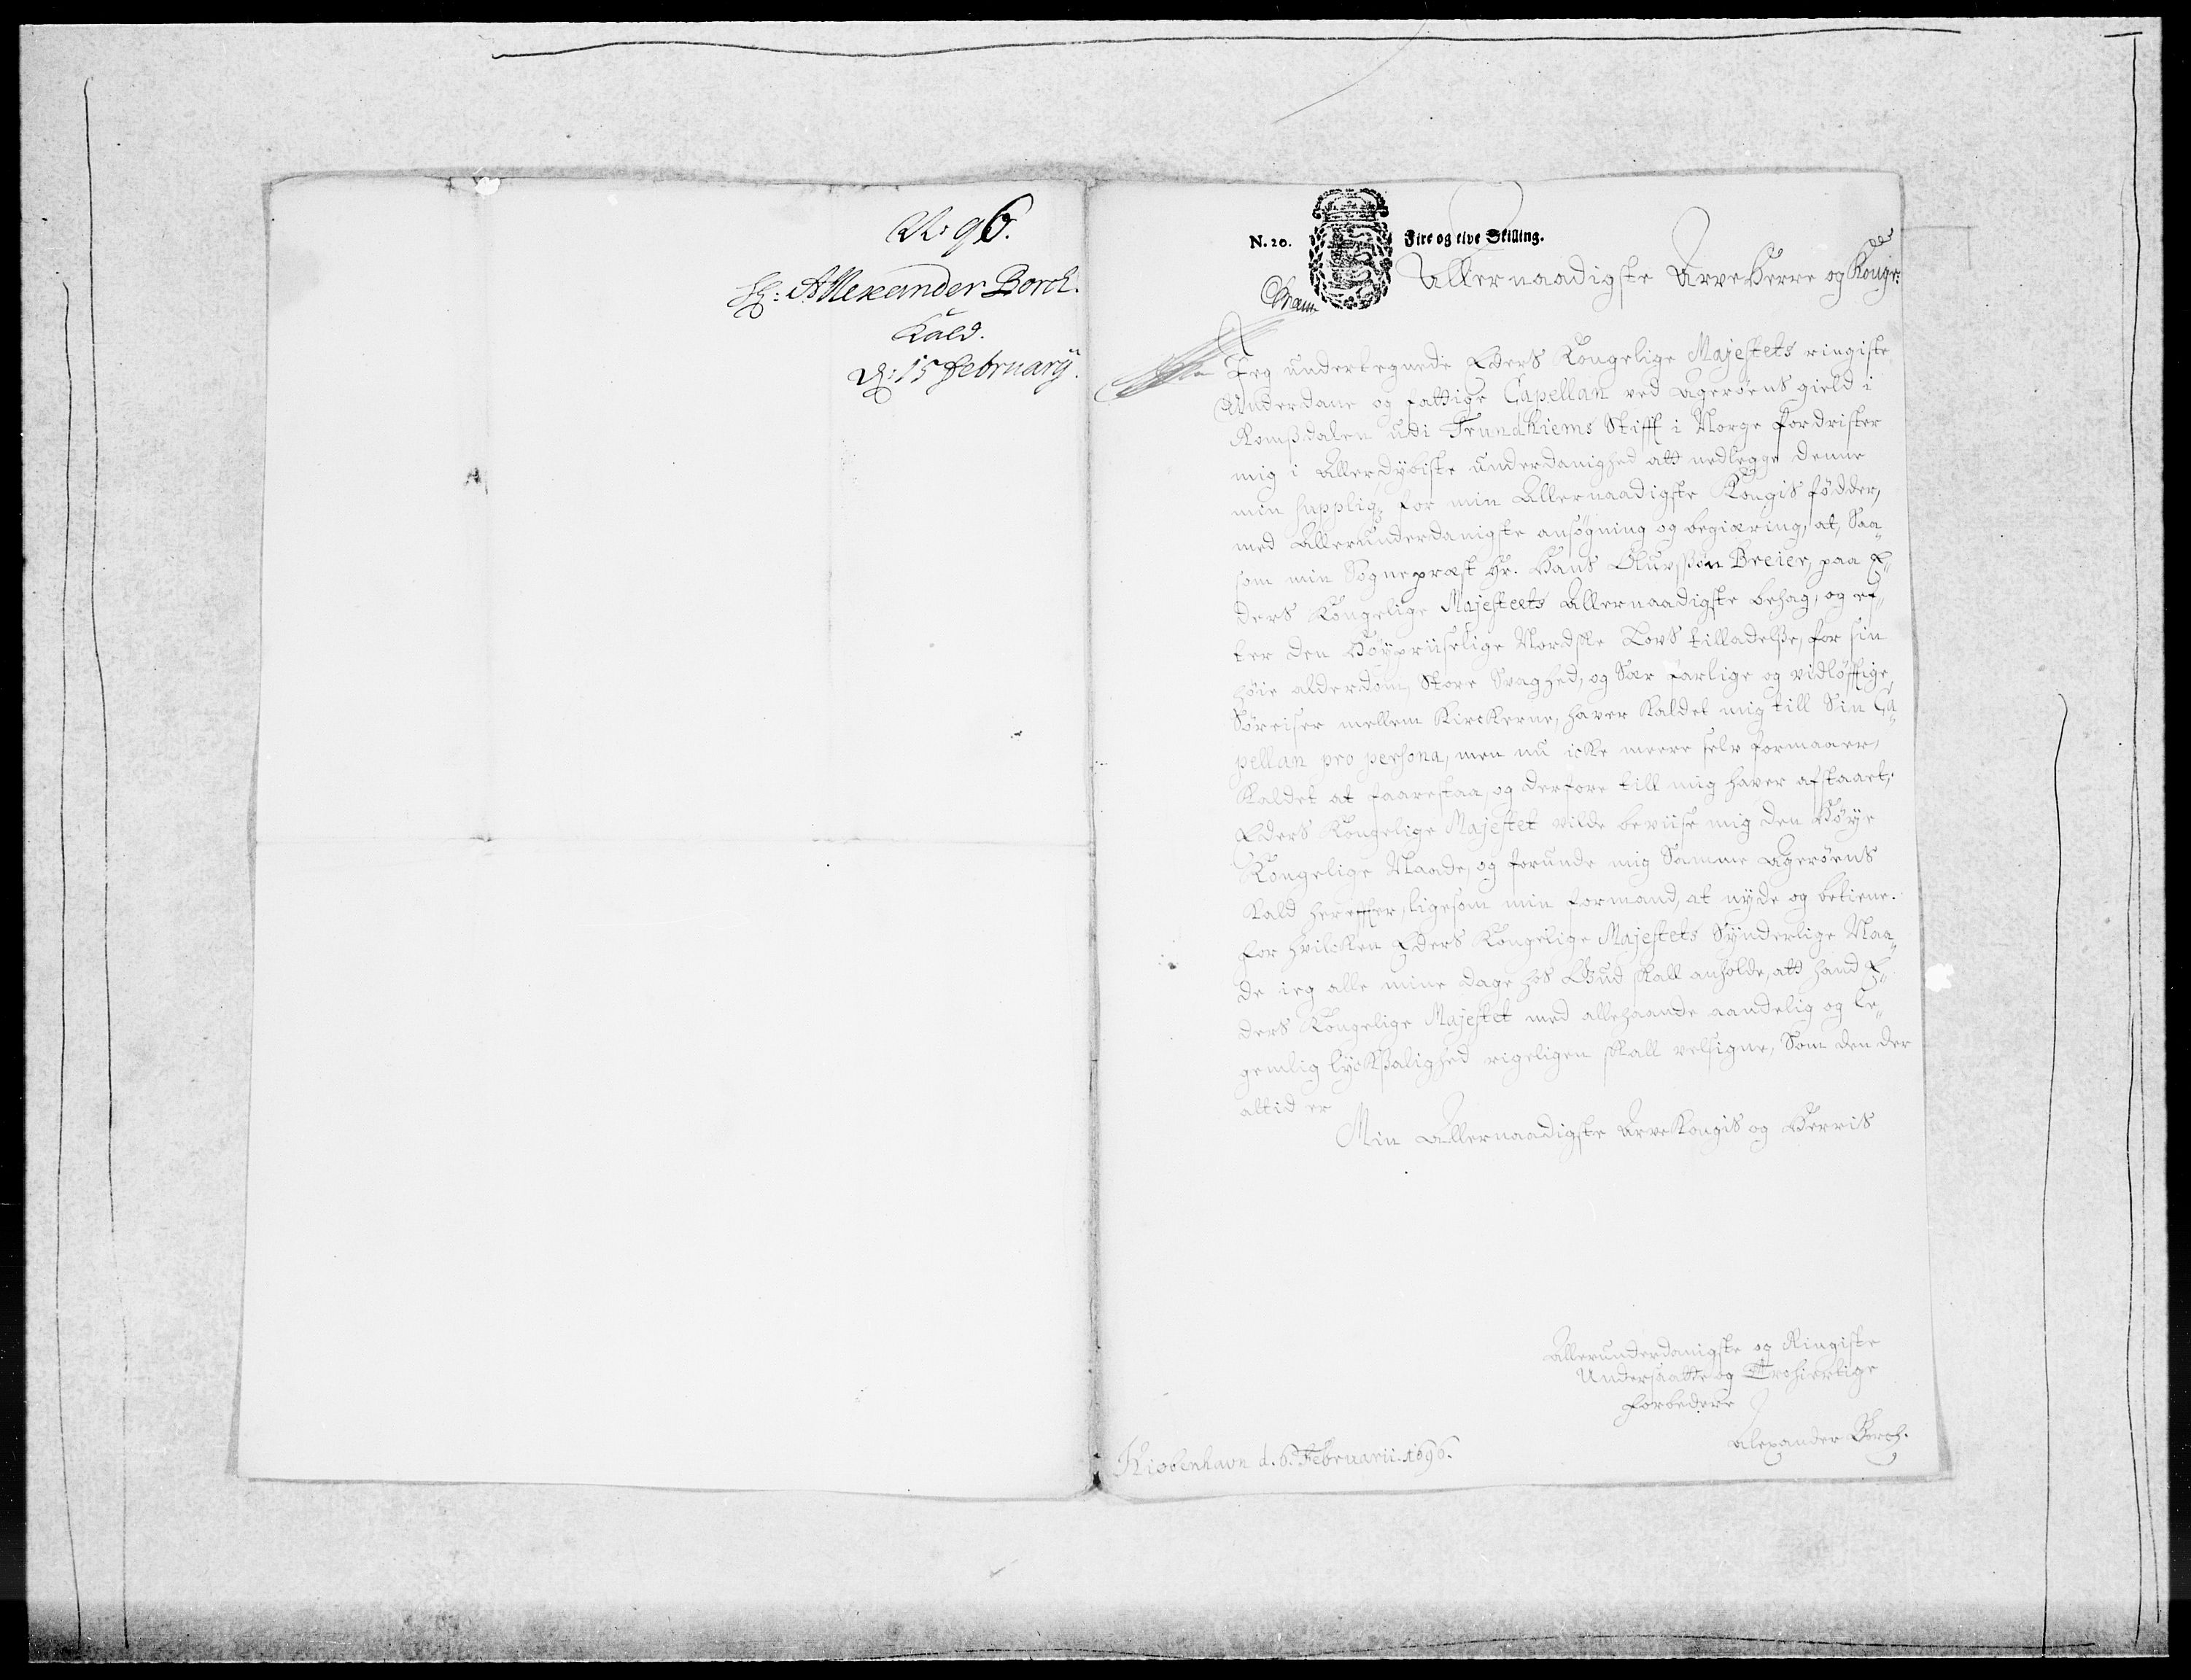 No: 96.
Hr: Allexander Borch.
Kald.
d: 15 February.
N. 20.
Fire og tive Skilling.
Allernaadigste Arve Herre og Konge.
Jeg undertegnede Eders Kongelige Majestets ringiste
Underdane og fattige Capellan ved Agerøens gield i
Romßdalen udi Trundhiems Stifft i Norge fordrister
mig i Allerdybiste underdanighed att nedlegge denne
min suppliq, for min Allernaadigste Kongis fødder,
med Allerunderdanigste ansøgning og begiæring, at, Saa„
som min Sognepræst Hr. Hans Oluffssøn Breier, paa E„
ders Kongelige Majesteets Allernaadigste behag, og ef„
ter den Høypriiselige Nordske Lovs tilladelße, for sin
høie alderdom, Store Svaghed, og Saer farlige og vidløfftige,
Søreiser mellem Kirckerne, haver kaldet mig till Sin Ca„
pellan pro persona, men nu icke meere selv formaaer,
Kaldet at faarestaa, og derfore till mig haver afstaaet,
Eders Kongelige Majestet vilde beviise mig den Høye
Kongelige Naade, og forunde mig Samme Agerøens
Kald hereffter, ligesom min formand, at nyde og betiene.
For hvilcken Eders Kongelige Majestets Synderlige Naa„
de ieg alle mine dage hos Gud skall anholde, att hand E„
ders Kongelige Majestet med allehaande aandelig og le„
gemlig lyckßalighed rigeligen skall velsigne, Som den der
altid er
Min Allernaadigste Arve Kongis og Herris
Allerunderdanigste og Ringiste
Undersaatte og Trohiertige
forbedere
Alexander Borch.
Kiøbenhavn d. 6. Februarii. 1696.